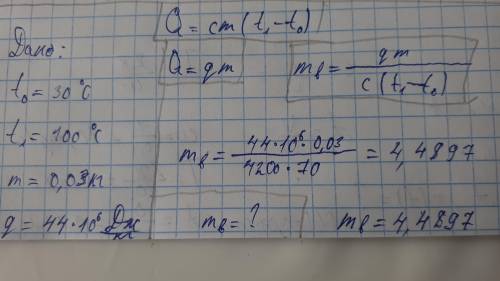 Дано:
t₀ = 30°C
t₁ = 100°C
m = 0,03кг
q = 44·10⁶ Дж/кг
Q = cm(t₁-t₀)
Q = qm
mв = qm / c(t₁-t₀)
mв = 44·10⁶·0,03 / 4200·70 = 4,4897
mв = ?
mв = 4,4897